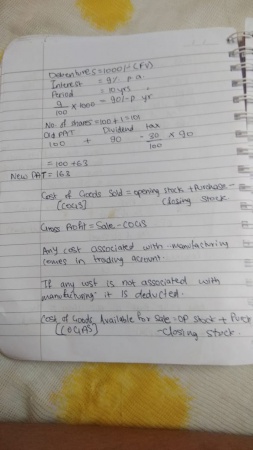 Debentures = 1000/- (FV)
Interest = 9% p.a.
Period = 10 yrs
9/100 × 1000 = 90/- p. yr
No. of shares = 100 + 1 = 101
Old PAT Dividend tax
100 + 90 - 30/100 × 90
= 100 + 63
New PAT = 163
Cost of Goods Sold = opening stock + Purchase -
[COGS] closing stock
Gross Profit = Sale - COGS
Any cost associated with manufacturing
comes in trading account.
If any cost is not associated with
manufacturing it is deducted.
Cost of Goods Available for Sale = OP stock + Purc
[COGAS] - closing stock.